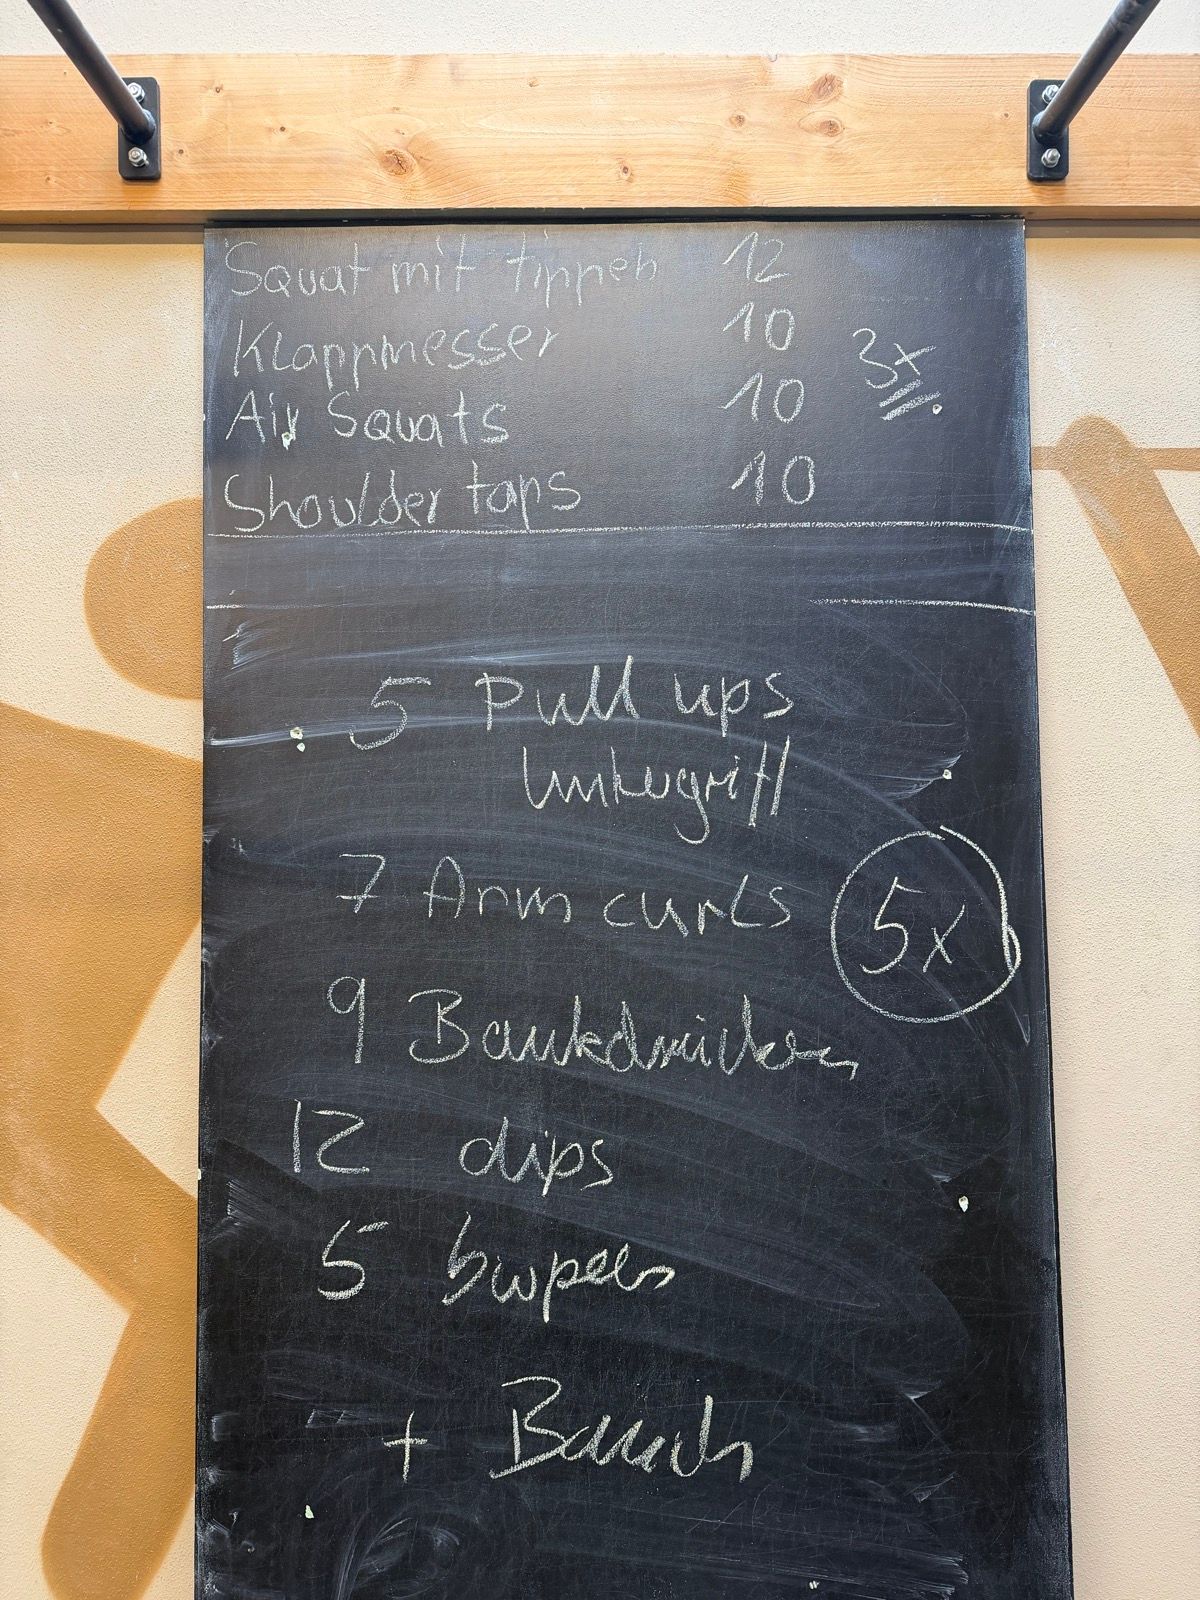 Squat mit tippen 12
Klappmesser 10
3x
Air Squats 10
Shoulder taps 10
5 Pull ups
Untergriff
7 Arm curls
5x
9 Bankdrücken
12 dips
5 burpees
+ Bauch